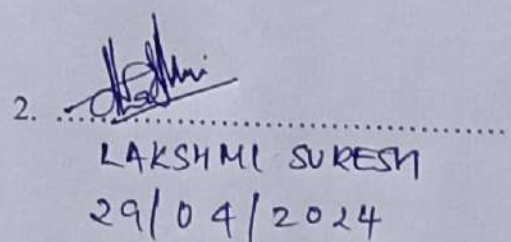 2. ....................................................
LAKSHMI SURESH
29/04/2024